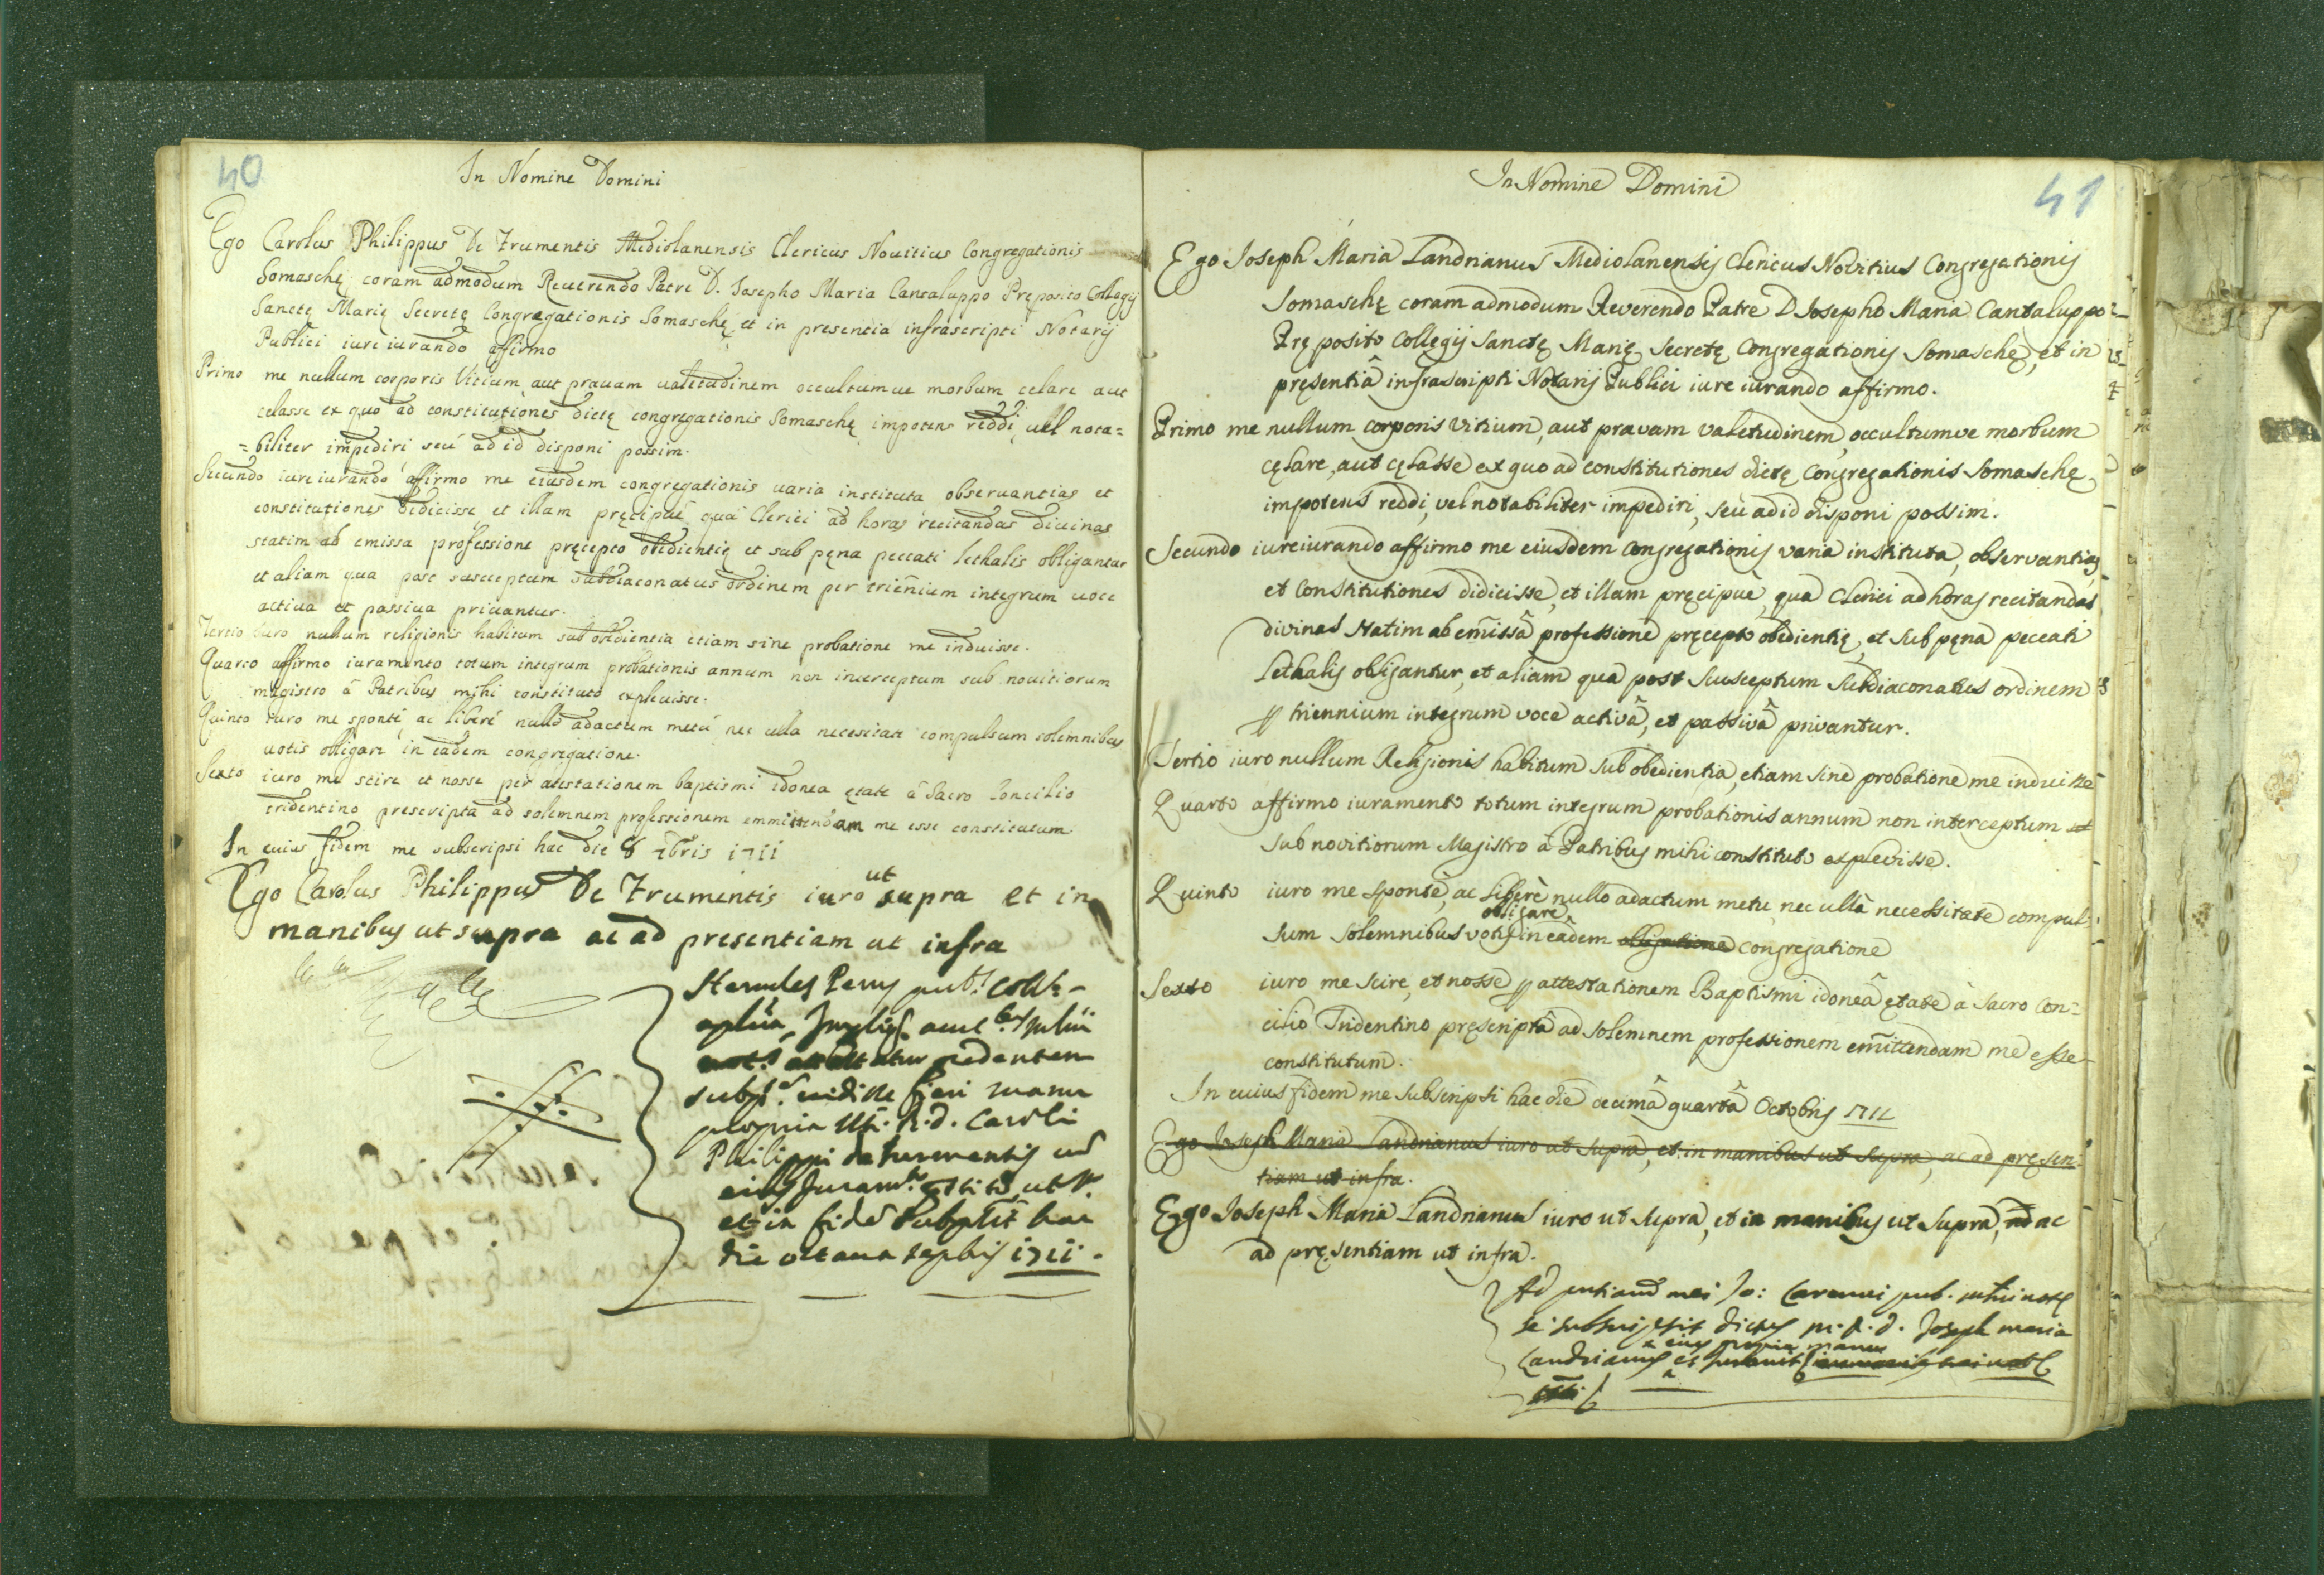 40
In Nomine Domini
Ego Carolus Philippus De Frumentis Mediolanensis Clericus Nouitius Congregationis
Somaschę coram admodum Reuerendo Patre D. Iosepho Maria Cantaluppo Pręposito Collegij
Sanctę Marię Secretę Congregationis Somaschę et in presentia infrascripti Notarij
Publici iure iurando affirmo
Primo me nullum corporis Vitium aut prauam ualetudinem occultumue morbum celare aut
celasse ex quo ad constitutiones dictę congregationis Somaschę impotens reddi, uel nota=
=biliter impediri seù ad id disponi possim.
Secundo iure iurando affirmo me eiusdem congregationis uaria instituta obseruantias et
constitutiones didicisse et illam pręcipuè quà Clerici ad horas recitandas diuinas
statim ab emissa professione pręcepto obedientię et sub pęna peccati lethalis obligantur
et aliam qua post susceptum subdiaconatus ordinem per trienium integrum uoce
actiua et passiua priuantur.
Tertio iuro nullum religionis habitum sub obedientia etiam sine probatione me induisse.
Quarto affirmo iuramento totum integrum probationis annum non interceptum sub nouitiorum
magistro à Patribus mihi constituto expleuisse.
Quinto iuro me spontè, ac liberè nullo adactum metù nec ulla necesitate compulsum solemnibus
uotis obligare in eadem congregatione.
Sexto iuro me scire et nosse per atestationem baptismi idonea ętate à Sacro Concilio
tridentino prescripta ad solemnem professionem emmittendam me esse constitutum
In cuius fidem me subscripsi hac die 8 7bris 1711
Ego Carolus Philippus De Frumentis iuro ut supra et in
manibus ut supra ac ad presentiam ut infra
Hercules pub.
subs. uidisse fieri manu
propria R.d. Caroli
Philippi de Frumentis
eius Juram. ut s.
et in fide hac
die octaua 1711.
41
In Nomine Domini
Ego Ioseph Maria Landrianus Mediolanensis Clericus Novitius Congregationis
Somaschę coram admodum Reverendo Patre D Iosepho Maria Cantaluppo
Pręposito Collegij Sanctę Marię Secretę Congregationis Somaschę, et in
pręsentiâ infrascripti Notarij Publici iure iurando affirmo.
Primo me nullum corporis vitium, aut pravam valetudinem, occultumve morbum
cęlare, aut cęlasse ex quo ad constitutiones dictę Congregationis Somaschę,
impotens reddi, vel notabiliter impediri, seù ad id disponi possim.
Secundo iureiurando affirmo me eiusdem Congregationis varia instituta, observantias
et Constitutiones didicisse, et illam pręcipuè, qua Clerici ad horas recitandas
divinas statim ab emissâ professione pręcepto obedientię, et sub pęna peccati
Lethalis obligantur, et aliam qua post susceptum subdiaconatus ordinem
p triennium integrum voce activâ, et passivâ privantur.
Tertio iuro nullum Religionis habitum sub obedientia, etiam sine probatione me induisse
Quarto affirmo iuramento totum integrum probationis annum non interceptum
sub novitiorum Magistro à Patribus mihi constituto explevisse.
Quinto iuro me spontè, ac liberè nullo adactum metu, nec ullâ necessitate compul=
sum solemnibus votis obligare in eâdem obligatione congregatione
Sexto iuro me scire, et nosse p attestationem Baptismi idoneâ ętate à sacro Con=
cilio Tridentino pręscriptâ ad solemnem professionem emittendam me esse
constitutum.
In cuius fidem me subscripsi hac die decimâ quartâ Octobris 1711
Ego Ioseph Maria Landrianus iuro ut supra, et in manibus ut supra, ac ad pręsen=
tiam ut infra.
Ego Ioseph Maria Landrianus iuro ut supra, et in manibus ut supra, ad ac
ad pręsentiam ut infra.
Ad mei Jo: pub.
se dictus m.r.d. Joseph maria
Landrianus eius propria manu et